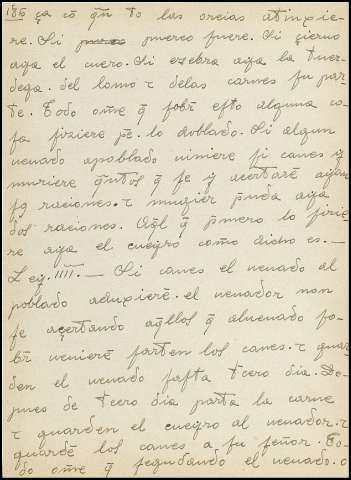 185 ça cō qn̄ to las oreias atinxie-
re. Si puerco fuere. Si çieruo
aya el cuero. Si ezebra aya la tuer-
dega. del lomo τ delas carnes su par-
te. Todo om̄e q̄ sobr̄ esto alguna co-
sa fiziere pē. lo doblado. Si algun
uenado apoblado uiniere si canes y
muriere q̄ntos q̄ se y açertarē ayan
sēs raciones. τ mugier pn̄da aya
dos raciones. Aq̄l q̄ pmero lo firie-
re aya el cueyro como dicho es. —
Ley. IIII. — Si canes el uenado al
poblado aduxierē. el uenador non
se açertando aq̄llos q̄ aluenado so-
br̄ uenierē farten los canes. τ guar-
den el uenado fasta t̄cero dia. De-
pues de t̄cero dia parta la carne
τ guarden el cueyro al uenador. τ
guardē los canes a su señor. To-
do om̄e q̄ segudando el uenado. o